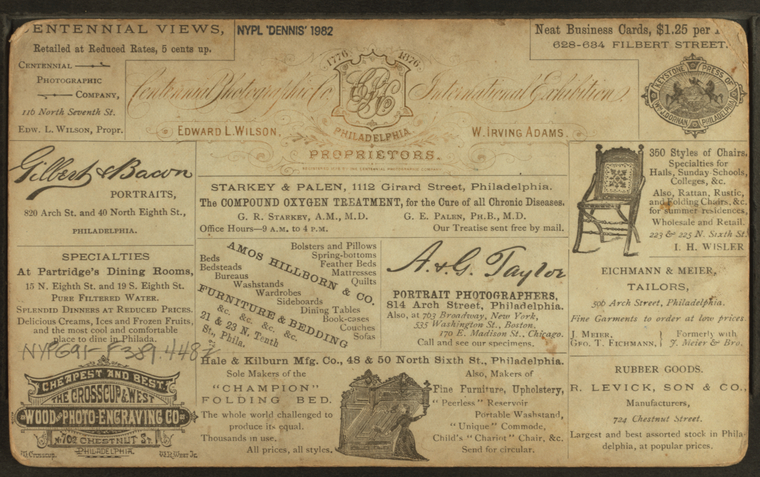 ENTENNIAL VIEWS,
Retailed at Reduced Rates, 5 cents up.
CENTENNIAL
PHOTOGRAPHIC
COMPANY,
116 North Seventh St.
EDW. L. WILSON, Propr.
NYPL 'DENNIS' 1982
Neat Business Cards, $1.25 per
628-634 FILBERT STREET.
1776. 1876.
CPhC
Centennial Photographic Co. International Exhibition,
PHILADELPHIA
EDWARD L. WILSON, W. IRVING ADAMS.
PROPRIETORS.
KEYSTONE PRESS OF
WM. F. DORNAN PHILADELPHIA
Gilbert & Bacon
PORTRAITS,
820 Arch St. and 40 North Eighth St.,
PHILADELPHIA.
STARKEY & PALEN, 1112 Girard Street, Philadelphia.
The COMPOUND OXYGEN TREATMENT, for the Cure of all Chronic Diseases.
G. R. STARKEY, A.M., M.D. G. E. PALEN, PH.B., M.D.
Office Hours—9 A.M. to 4 P.M. Our Treatise sent free by mail.
350 Styles of Chairs.
Specialties for
Halls, Sunday Schools,
Colleges, &c.
Also, Rattan, Rustic,
and Folding Chairs, &c.
for summer residences,
Wholesale and Retail.
223 & 225 N. Sixth St.
I. H. WISLER
SPECIALTIES
At Partridge's Dining Rooms,
15 N. Eighth St. and 19 S. Eighth St.
PURE FILTERED WATER.
SPLENDID DINNERS AT REDUCED PRICES.
Delicious Creams, Ices and Frozen Fruits,
and the most cool and comfortable
place to dine in Philada.
NYPG91-F389.448z
AMOS HILLBORN & CO.
Beds
Bedsteads
Bureaus
Washstands
Wardrobes
Sideboards
Dining Tables
Book-cases
Couches
Sofas
Bolsters and Pillows
Spring-bottoms
Feather Beds
Mattresses
Quilts
FURNITURE & BEDDING
&c. &c. &c. &c.
21 & 23 N. Tenth
St., Phila.
A. & G. Taylor
PORTRAIT PHOTOGRAPHERS,
814 Arch Street, Philadelphia.
Also, at 763 Broadway, New York,
535 Washington St., Boston,
170 E. Madison St., Chicago.
Call and see our specimens.
EICHMANN & MEIER,
TAILORS,
506 Arch Street, Philadelphia.
Fine Garments to order at low prices
J. MEIER, Formerly with
GEO. T. EICHMANN, J. Meier & Bro.
CHEAPEST AND BEST.
THE CROSSCUP & WEST
WOOD AND PHOTO-ENGRAVING CO
No 702 CHESTNUT ST.
PHILADELPHIA
Hale & Kilburn Mfg. Co., 48 & 50 North Sixth St., Philadelphia.
Sole Makers of the
"CHAMPION"
FOLDING BED.
The whole world challenged to
produce its equal.
Thousands in use.
All prices, all styles.
Also, Makers of
Fine Furniture, Upholstery,
"Peerless" Reservoir
Portable Washstand,
"Unique" Commode,
Child's "Chariot" Chair, &c.
Send for circular.
RUBBER GOODS.
R. LEVICK, SON & CO.,
Manufacturers,
724 Chestnut Street.
Largest and best assorted stock in Phila
delphia, at popular prices.